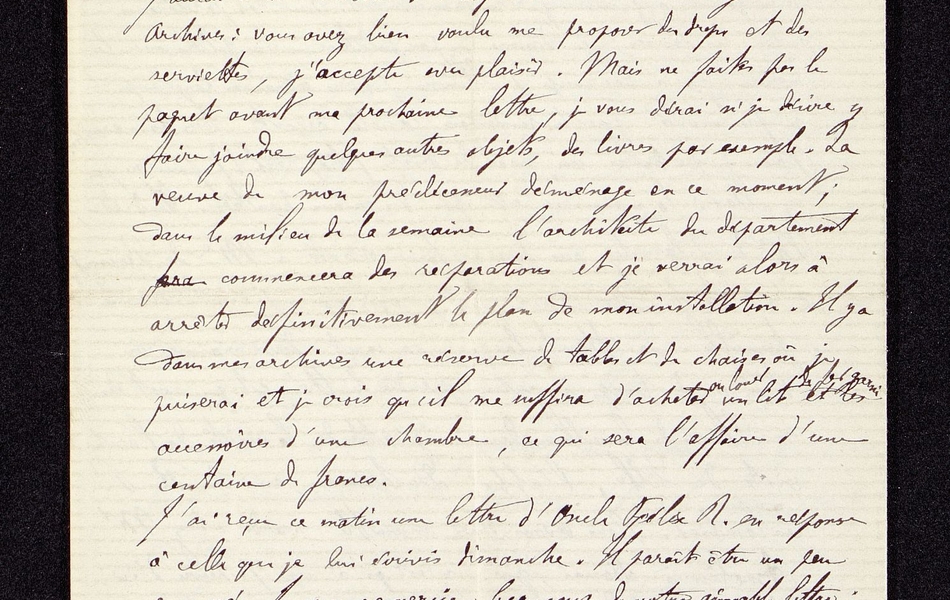 Archives : vous avez bien voulu me proposer des draps et des
serviettes, j'accepte avec plaisir. Mais ne faites pas le
paquet avant ma prochaine lettre, je vous dirai si je désire y
faire joindre quelques autres objets, des livres par exemple. La
veuve de mon prédécesseur déménage en ce moment ;
dans le milieu de la semaine l'architecte du département
fera commencera des réparations et je verrai alors à
arrêter définitivement le plan de mon installation. Il y a
dans mes archives une réserve de tables et de chaises où je
puiserai et je crois qu'il me suffira d'acheter ou louer un lit et les
accessoires d'une chambre, ce qui sera l'affaire d'une
centaine de francs.
J'ai reçu ce matin une lettre d'Oncle Felix R. en réponse
à celle que je lui écrivis dimanche. Il paraît être un peu
lettre